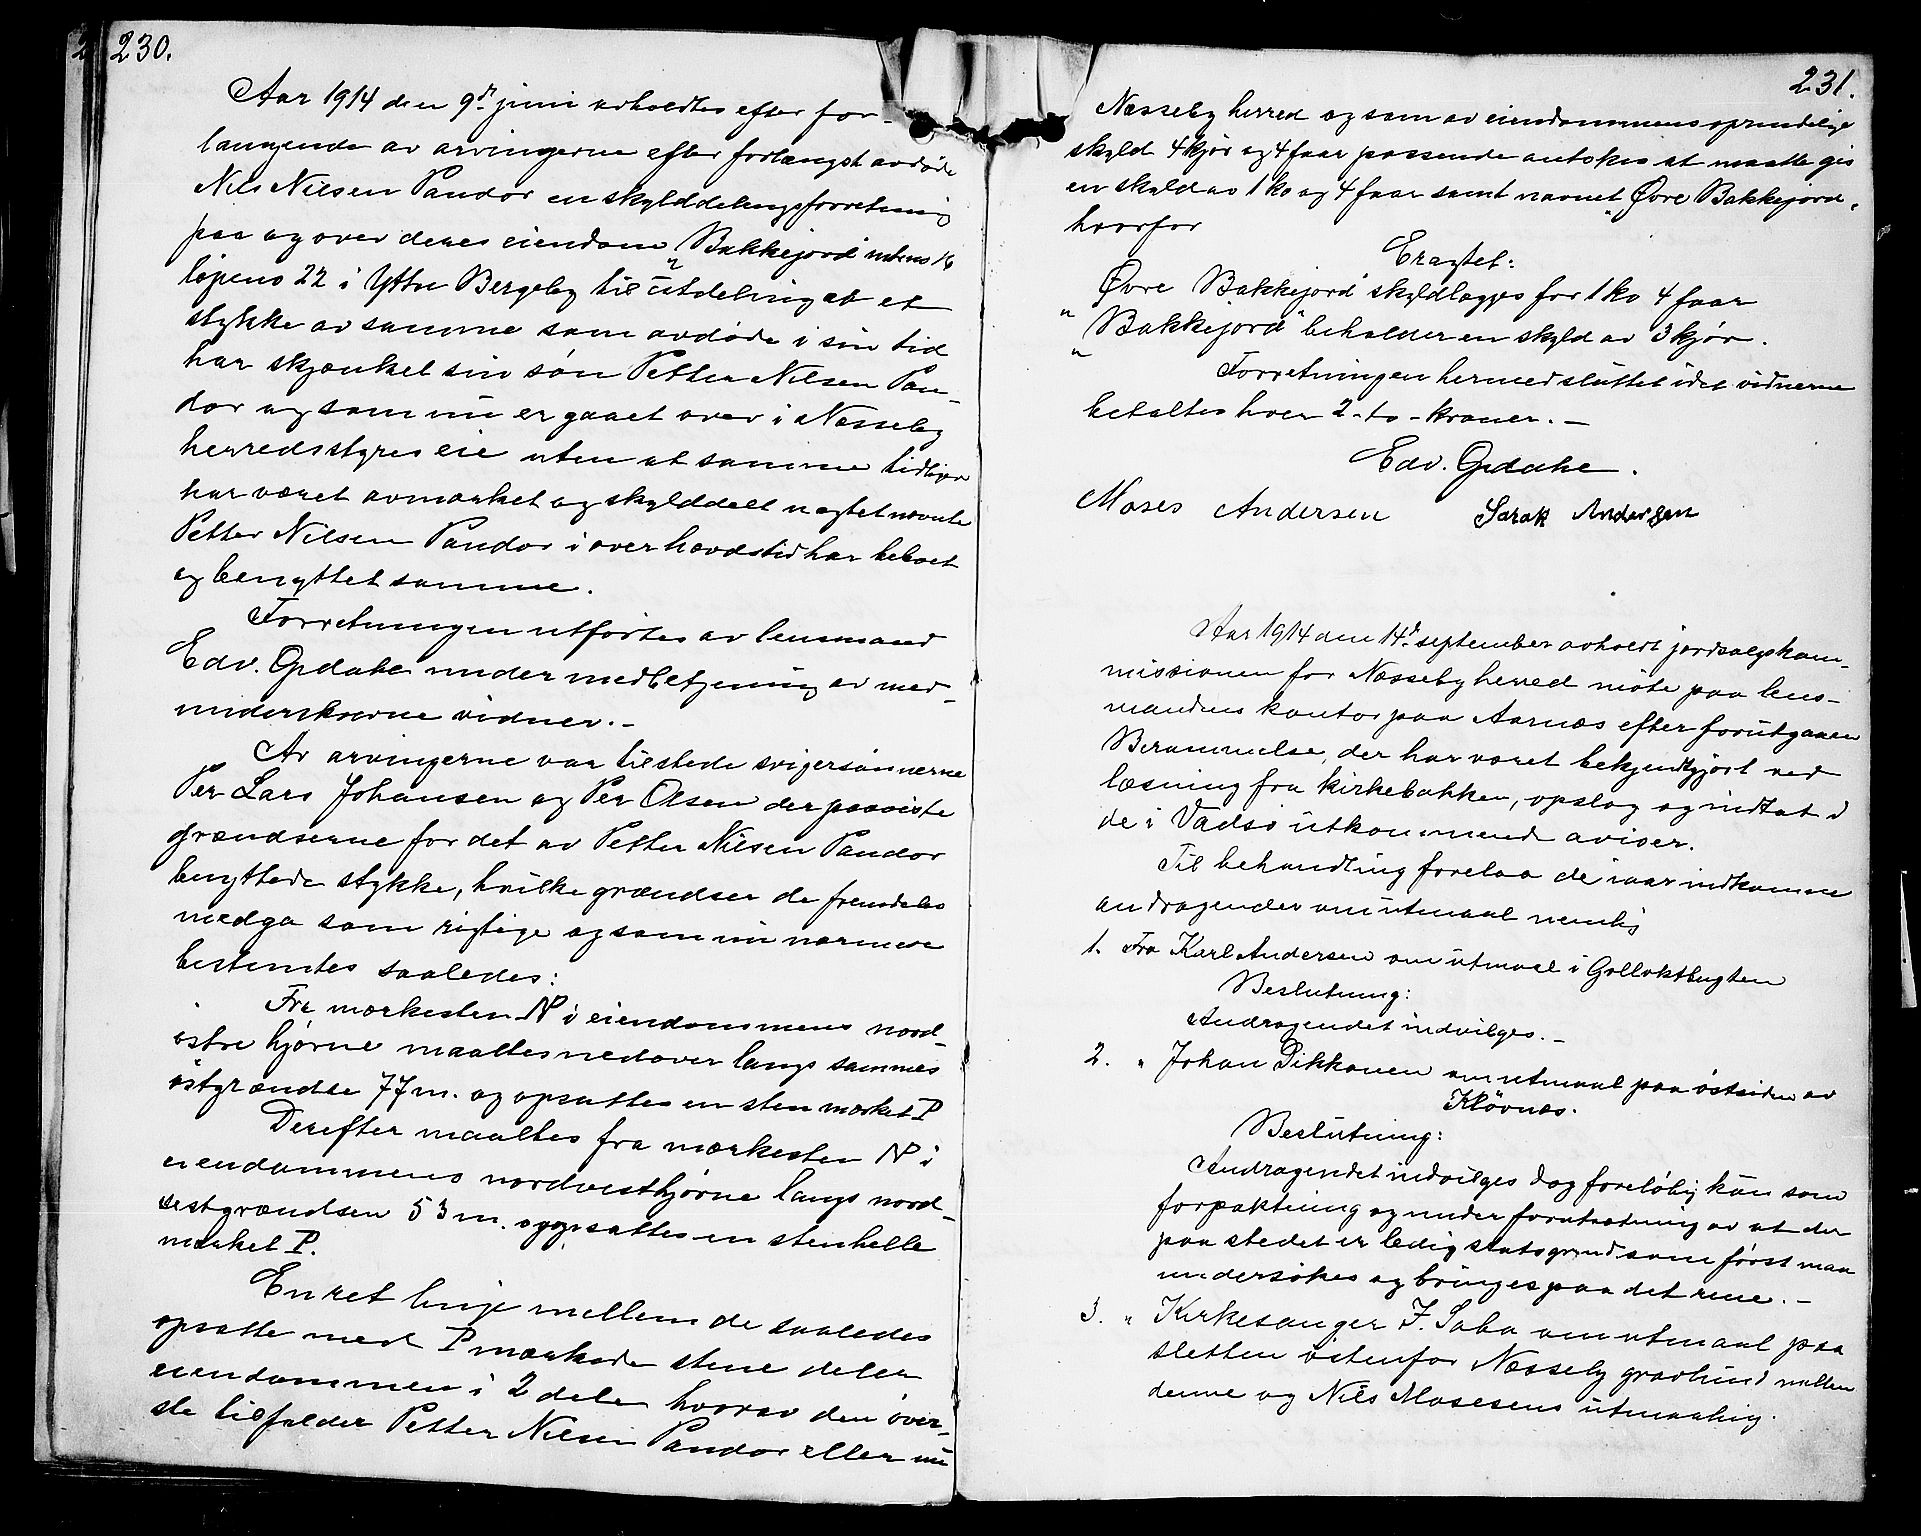 230.
Aar 1914 den 9de juni avholdtes efter for-
langende av arvingerne efter forlængst avdöde
Nils Nilsen Pandor en skylddelingsforretning
paa og over deres eiendom „Bakkejord" mtrno 16
löpeno 22 i Yttre Bergeby til utdeling at et
stykke av samme som avdöde i sin tid
har skjænket sin sön Petter Nilsen Pan-
dor og som nu er gaaet over i Nesseby
herredsstyres eie uten at samme tidligere
har været avmærket og skylddelt uagtet nævnte
Petter Nilsen Pandor i over hævdstid har beboet
og benyttet samme.
Forretningen utförtes av lensmand
Edv. Opdahe under medbetjening av med-
underskrevne vidner.-
Av arvingerne var tilstede svigersönnerne
Per Lars Johansen og Per Olsen der paaviste
grændserne for det av Petter Nilsen Pandor
benyttede stykke, hvilke grændser de fremdeles
medga som rigtige og som nu nærmere
bestemtes saaledes:
Fra merkesten N i eiendommens nord-
östre hjörne maaltes nedover langs sammes
östgrændse 77 m. og opsattes en sten merket P
Derefter maaltes fra merkesten N i
eiendommens nordvesthjörne langs nord-
vestgrændsen 53 m. og opsattes en stenhelle
merket P.
En ret linje mellem de saaledes
opsatte med P merkede stene deler
eiendommen i 2 dele hvorav den över-
ste tilfalder Petter Nilsen Pandor eller nu
231.
Nesseby herred og som av eiendommens oprindelige
skyld 4 kjör og 4 faar passende antokes at maatte gis
en skyld av 1 ko og 4 faar samt navnet „Övre Bakkejord"
hvorfor
Eragtet:
„Övre Bakkejord" skyldlægges for 1 ko 4 faar
„Bakkejord" beholder en skyld av 3 kjör.
Forretningen hermed sluttet idet vidnerne
betaltes hver 2-to-kroner.-
Edv. Opdahe.
Moses Andersen Sarak Andersen
Aar 1914 den 14de september avholdt jordsalgskom-
missionen for Nesseby herred möte paa lens-
mandens kontor paa Aarnes efter forutgaaen
Berammelse, der har været bekjendtgjort ved
læsning fra kirkebakken, opslag og indtat i
de i Vadsö utkommende aviser.
Til behandling forelaa de iaar indkomne
andragender om utmaal nemlig
1. Fra Karl Andersen om utmaal i Gollektbugten
Beslutning:
Andragendet indvilges.-
2. " Johan Pikkonen om utmaal paa östsiden av
Klövnes.
Beslutning:
Andragendet indvilges dog forelöbig kun som
forpaktning og under forutsætning av at der
paa stedet er ledig statsgrund som först maa
undersökes og bringes paa det rene.-
3. " Kirkesanger I. Saba om utmaal paa
sletten östenfor Nesseby gravlund mellem
denne og Nils Mosesens utmaaling.